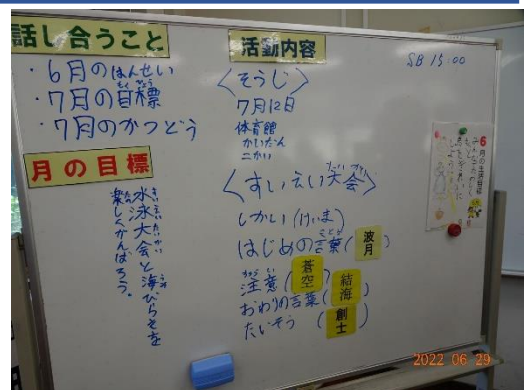 話し合うこと
・6月のはんせい
・7月の目標
もくひょう
・7月のかつどう
月の目標
水泳大会と海びらきを
すいえいたいかい うみ
楽しくがんばろう。
たの
活動内容
SB 15:00
<そうじ>
7月12日
体育館
かいだん
二かい
<すいえい大会>
たいかい
しかい(けいま)
はじめの言葉(波月)
ことば
注意(蒼空)
おわりの言葉(結海)
たいそう(創士)
6月の生活目標
2022 06 29